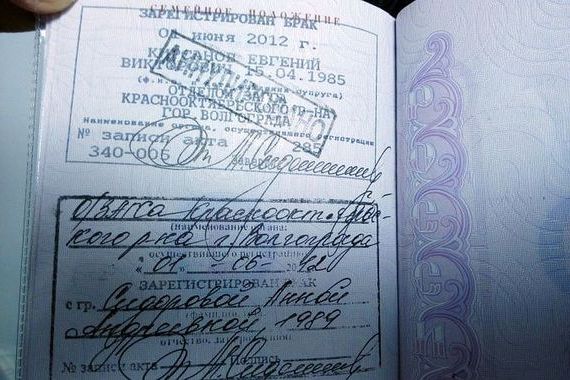 СЕМЕЙНОЕ ПОЛОЖЕНИЕ
ЗАРЕГИСТРИРОВАН БРАК
01 июня 2012 г.
ЕВГЕНИЙ
15.04.1985
ОТДЕЛОМ
КРАСНООКТЯБРЬСКОГО Р-НА
ГОР. ВОЛГОГРАДА
Наименование органа, осуществившего регистрацию
№ записи акта 285
340-006
ОЗАГСа Краснооктябрьс-
кого р-на г. Волгограда
(наименование органа,
осуществившего регистрацию)
"01" -06- 2012
ЗАРЕГИСТРИРОВАН БРАК
с гр. Сидоровой Анной
Андреевной, 1989
отчество, дата рождения)
№ записи акта Подпись